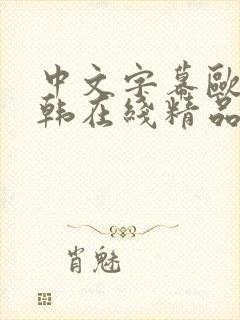 中文字幕歐
韩在綫精品
肖魅